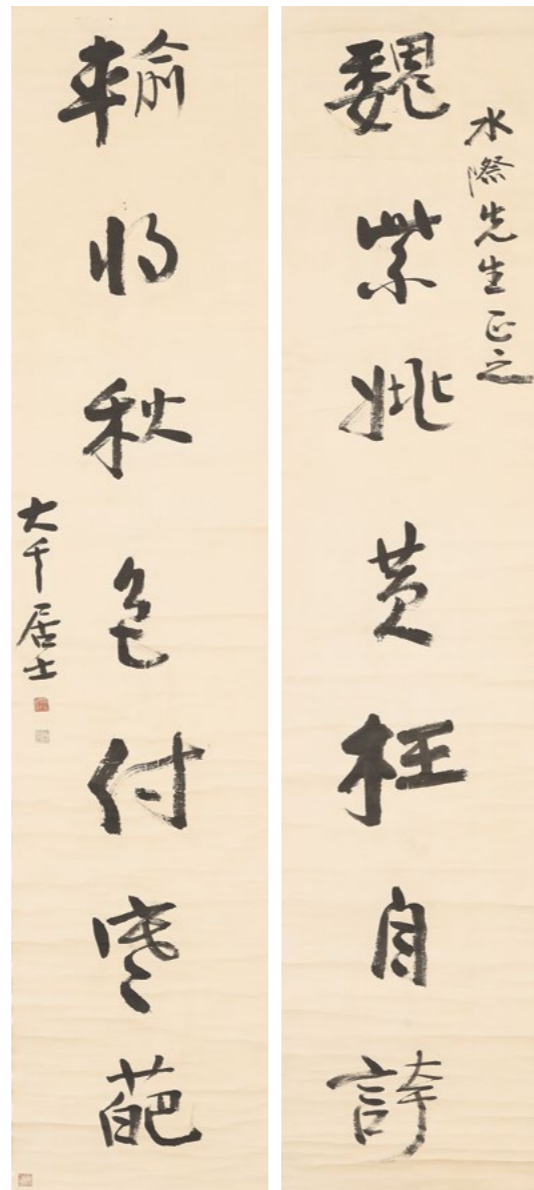 水際先生正之
魏紫姚黄枉自誇
輸将秋色付寒葩
大千居士